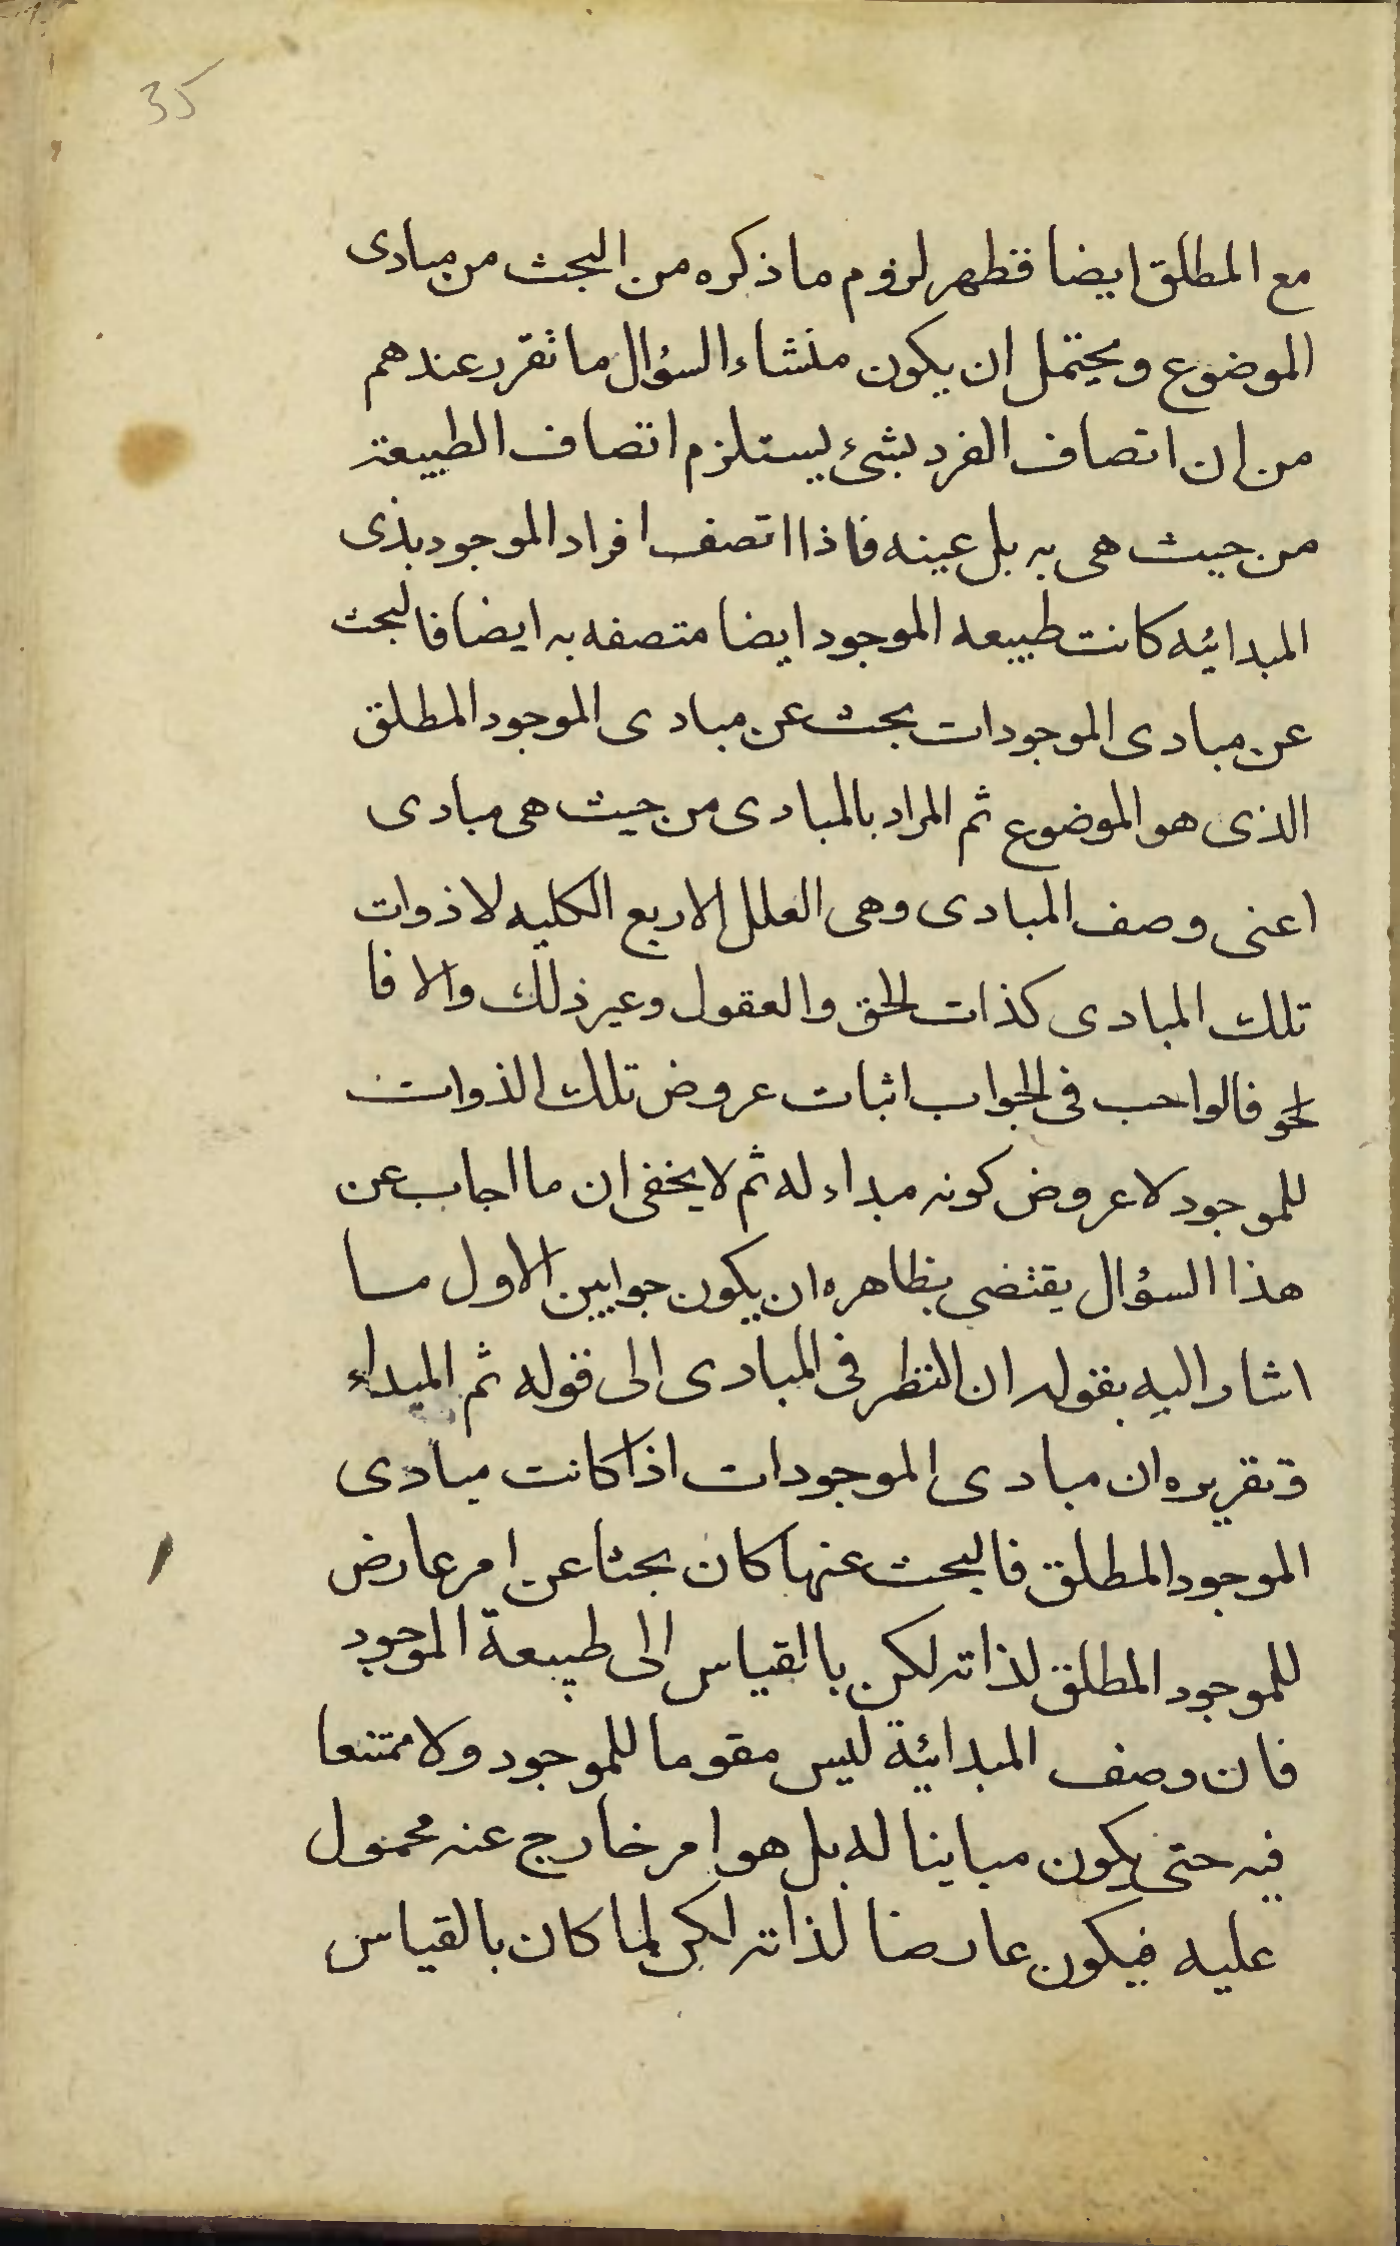 35
مع المطلق ايضا فظهر لزوم ما ذكره من البحث من مبادى
الموضوع ويحتمل ان يكون منشاء السؤال ما تقرر عندهم
من ان اتصاف الفرد بشئ يستلزم اتصاف الطبيعة
من حيث هى به بل عينه فاذا اتصف افراد الموجود بذى
المبدائيه كانت طبيعه الموجود ايضا متصفه به ايضا فالبحث
عن مبادى الموجودات بحث عن مبادى الموجود المطلق
الذى هو الموضوع ثم المراد بالمبادى من حيث هى مبادى
اعنى وصف المبادى وهى العلل الاربع الكليه لا ذوات
تلك المبادى كذات الحق والعقول وغير ذلك والا فا
لحو فالواجب فى الجواب اثبات عروض تلك الذوات
للموجود لا عروض كونه مبداء له ثم لا يخفى ان ما اجاب عن
هذا السؤال يقتضى بظاهره ان يكون جوابين الاول مسا
اشار اليه بقوله ان النظر فى المبادى الى قوله ثم المبداء
وتقريره ان مبادى الموجودات اذا كانت مبادى
الموجود المطلق فالبحث عنها كان بحثا عن امر عارض
للموجود المطلق لذاته لكن بالقياس الى طبيعة الموجود
فان وصف المبدائية ليس مقوما للموجود ولا ممتنعا
فيه حتى يكون مباينا له بل هو امر خارج عنه محمول
عليه فيكون عارضا لذاته لكن لما كان بالقياس